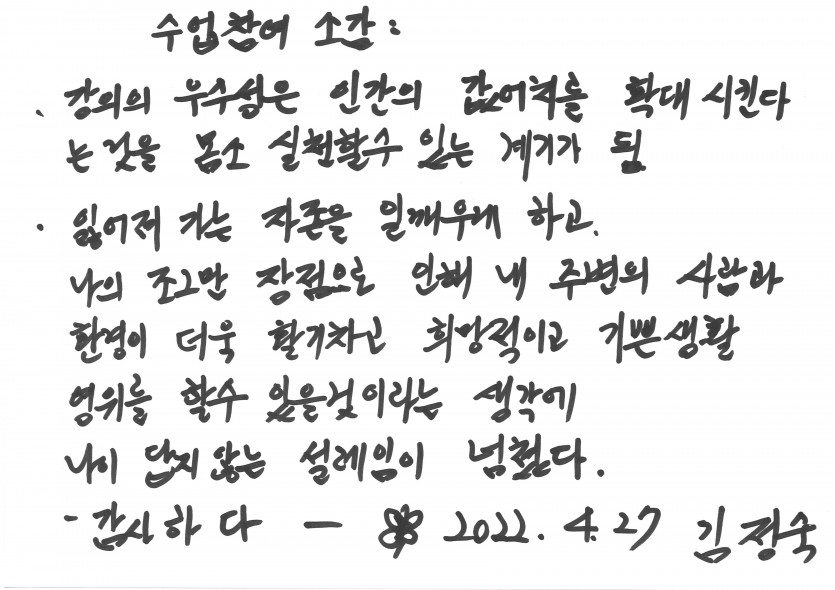 수업참여 소감:
. 강의의 우수성은 인간의 값어치를 확대 시킨다
는것을 몸소 실천할수 있는 계기가 됨
. 잃어져 가는 자존을 일깨우게 하고.
나의 조그만 장점으로 인해 내 주변의 사람과
환경이 더욱 활기차고 희망적이고 기쁜생활
영위를 할수 있을것이라는 생각에
나이 답지않는 설레임이 넘쳤다.
- 감사하다 — 2022. 4. 27 김정숙